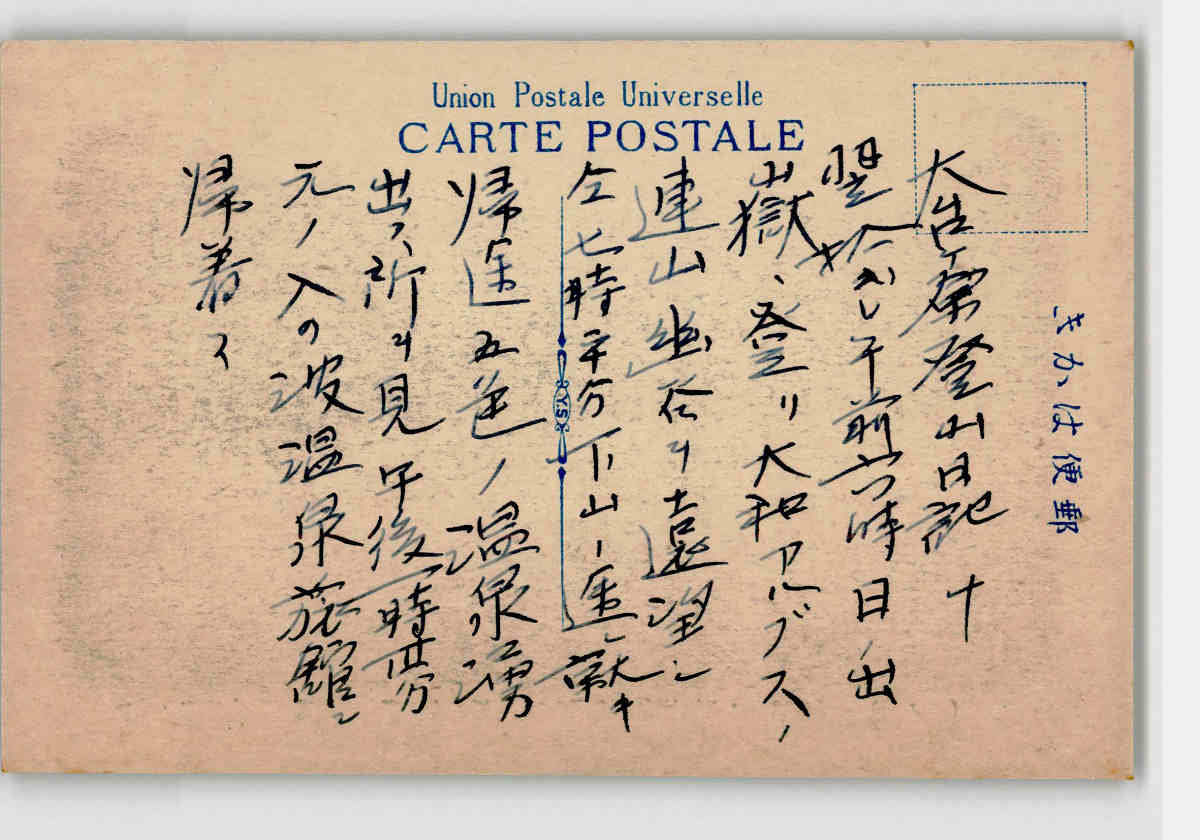 Union Postale Universelle
CARTE POSTALE
きかは便郵
大台ヶ原登山日記 十
翌 午前六時日ノ出
山嶽ニ登リ大和アルプスノ
連山幽谷ヲ遠望シ
仝七時半分下山ノ途ニ就キ
帰途五色ノ温泉湧
出ノ所ヲ見午後一時 分
元ノ入の波温泉旅館ニ
帰着ス
Y.S